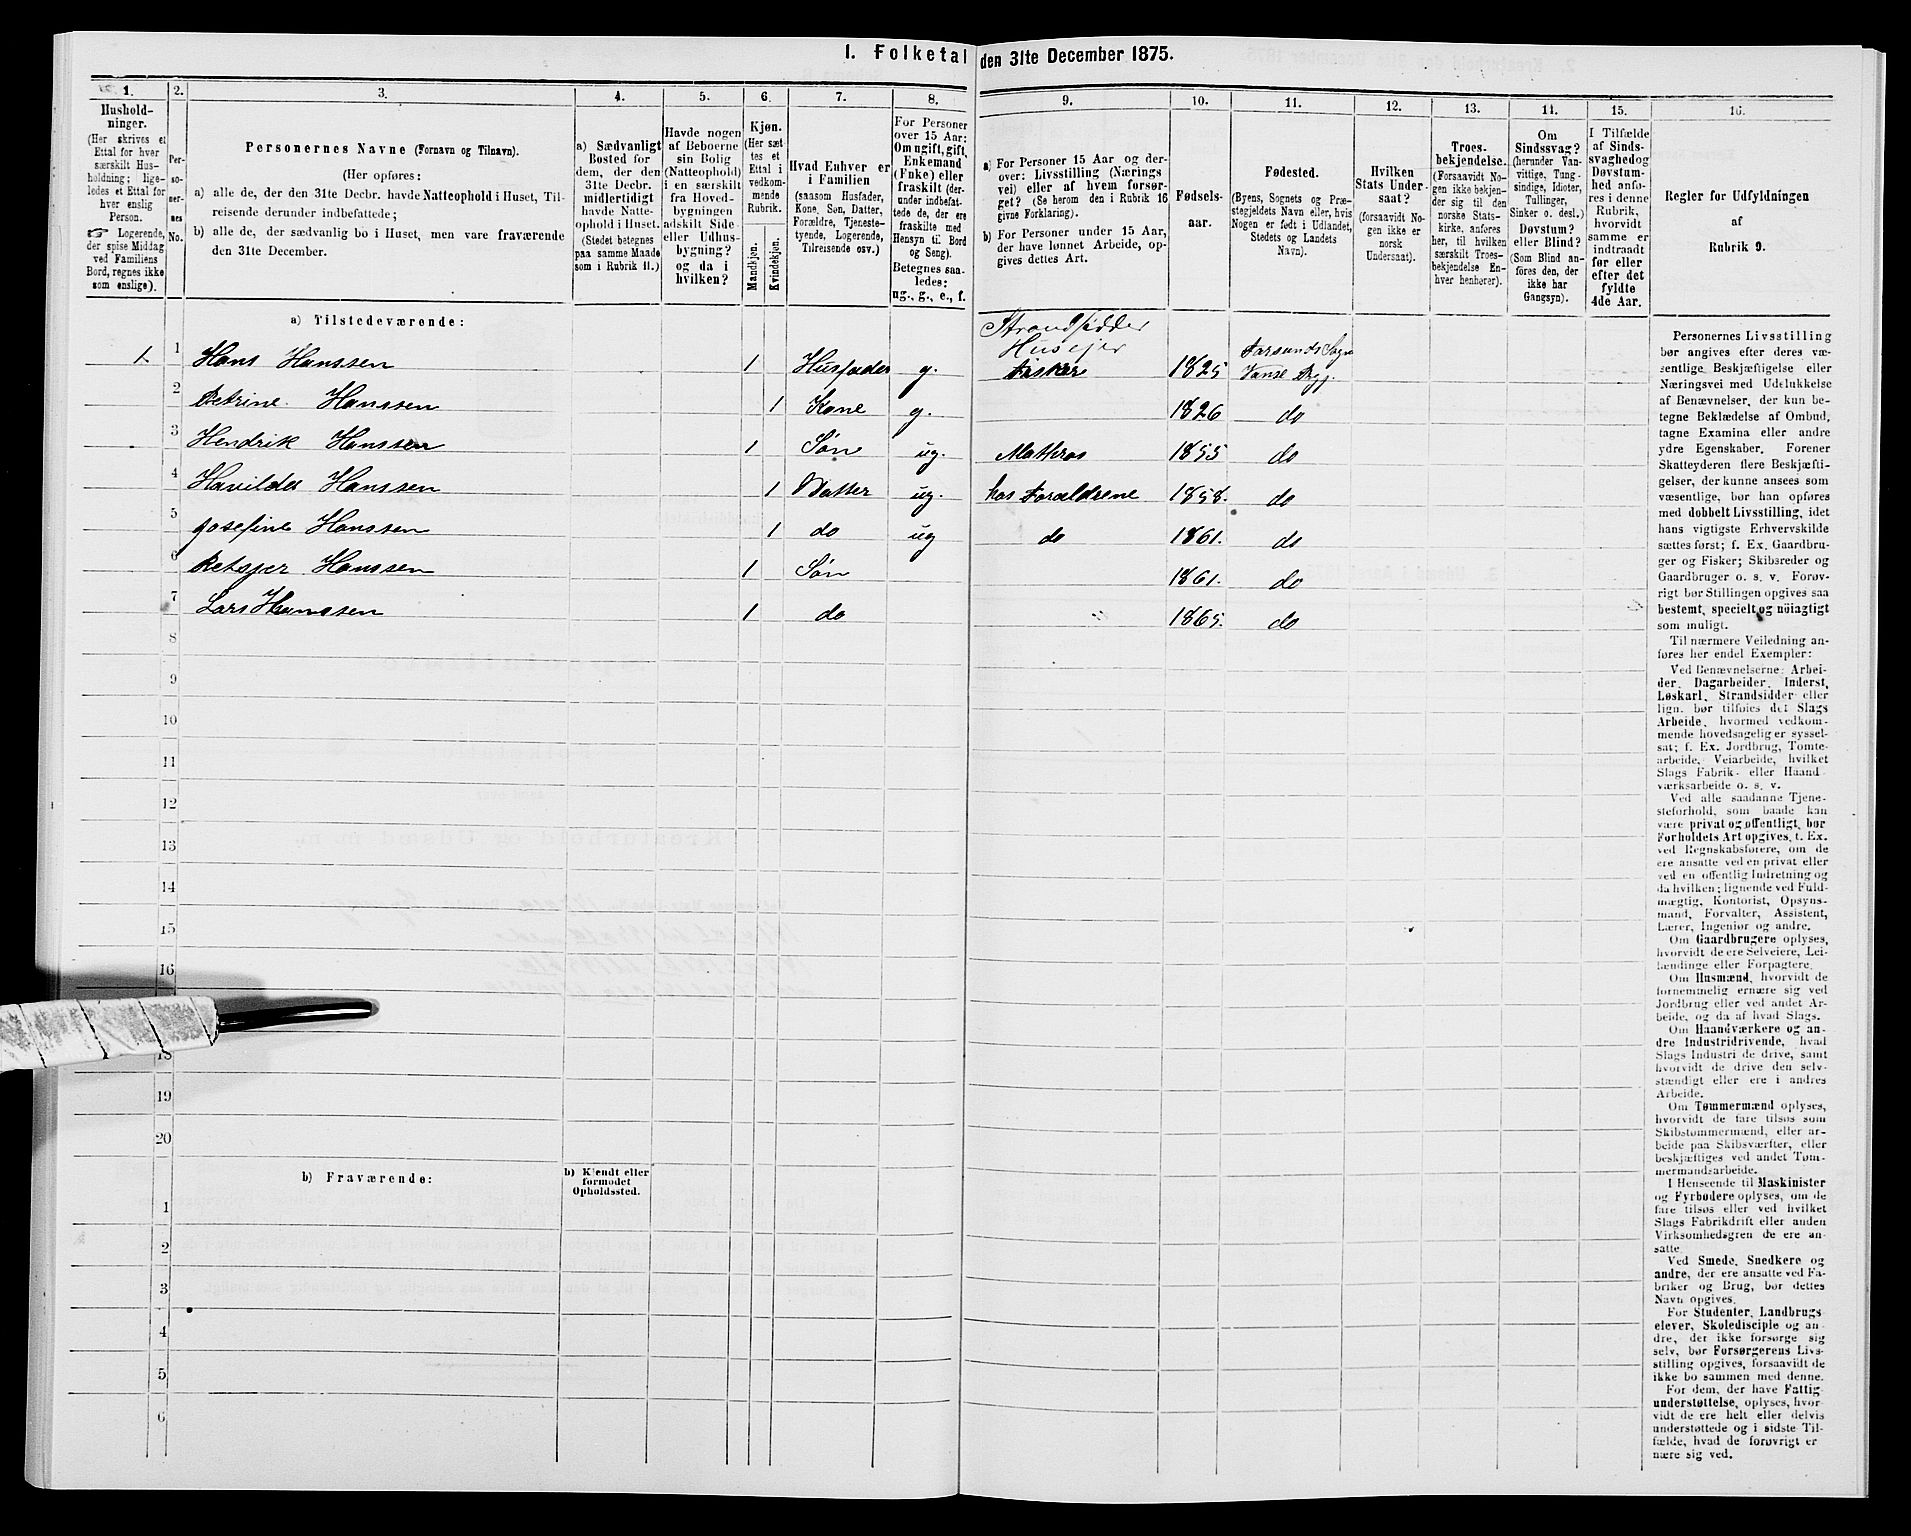 I. Folketal den 31te December 1875.
1.
Hushold-
ninger.
(Her skrives et
Ettal for hver
særskilt Hus-
holdning; lige-
ledes et Ettal for
hver enslig
Person.
☞ Logerende,
der spise Middag
ved Familiens
Bord, regnes ikke
som enslige).
2.
Per-
so-
ner-
nes
No.
3.
Personernes Navne (Fornavn og Tilnavn).
(Her opføres:
a) alle de, der den 31te Decbr. havde Natteophold i Huset, Til-
reisende derunder indbefattede;
b) alle de, der sædvanlig bo i Huset, men vare fraværende
den 31te December.
4.
a) Sædvanligt
Bosted for
dem, der den
31te Decbr.
midlertidigt
havde Natte-
ophold i Huset.
(Stedet betegnes
paa samme Maade
som i Rubrik 11.)
5.
Havde nogen
af Beboerne
sin Bolig
(Natteophold)
i en særskilt
fra Hoved-
bygningen
adskilt Side-
eller Udhus-
bygning?
og da i
hvilken?
6.
Kjøn.
(Her sæt
tes et
Ettal i
vedkom-
mende
Rubrik.
Mandkjøn.
Kvindekjøn.
7.
Hvad Enhver er
i Familien
(saasom Husfader,
Kone, Søn, Datter,
Forældre, Tjeneste-
tyende, Logerende,
Tilreisende osv.)
8.
For Personer
over 15 Aar:
Om ugift, gift,
Enkemand
(Enke) eller
fraskilt (der-
under indbefat-
tede de, der ere
fraskilte med
Hensyn til Bord
og Seng).
Betegnes saa-
ledes:
ug., g., e., f.
9.
a) For Personer 15 Aar og der-
over: Livsstilling (Nærings
vei) eller af hvem forsør-
get? (Se herom den i Rubrik 16
givne Forklaring).
b) For Personer under 15 Aar,
der have lønnet Arbeide, op-
gives dettes Art.
10.
Fødsels-
aar.
11.
Fødested.
(Byens, Sognets og Præ-
stegjeldets Navn eller, hvis
Nogen er født i Udlandet,
Stedets og Landets
Navn).
12.
Hvilken
Stats Under-
saat?
(forsaavidt No-
gen ikke er
norsk
Undersaat).
13.
Troes-
bekjendelse.
(Forsaavidt No-
gen ikke bekjen-
der sig til den
norske Stats-
kirke, anføres
her, til hvilken
særskilt Troes-
bekjendelse En-
hver henhører).
14.
Om
Sindssvag?
(herunder Van-
vittige, Tung-
sindige, Idioter,
Tullinger,
Sinker o. desl.)
Døvstum?
eller Blind?
(Som Blind an-
føres den, der
ikke har
Gangsyn).
15.
I Tilfælde
af Sinds-
svaghed og
Døvstum-
hed anfø-
res i denne
Rubrik,
hvorvidt
samme er
indtraadt
før eller
efter det
fyldte
4de Aar.
16.
Regler for Udfyldningen
af
Rubrik 9.
a) Tilstedeværende:
Strandsidder
Huseier
1 1 Hans Hanssen 1 Husfader g. Fisker 1825 Farsunds Sogn Vanse Prgj.
2 Petrine Hanssen 1 Kone g. 1826 do
3 Hendrik Hanssen 1 Søn ug. Mathros 1855 do
4 Havilda Hanssen 1 Datter ug. hos Forældrene 1858. do
5 Josefine Hanssen 1 do ug do 1861. do
6 Hanssen 1 Søn 1861. do
7 Lars Hanssen 1 do 1865. do
8
9
10
11
12
13
14
15
16
18
19
20
b) Fraværende:
b) Kjendt eller
formodet
Opholdssted.
1
2
3
4
5
6
Personernes Livsstilling
bør angives efter deres væ-
sentlige Beskjæftigelse eller
Næringsvei med Udelukkelse
af Benævnelser, der kun be-
tegne Beklædelse af Ombud,
tagne Examina eller andre
ydre Egenskaber. Forener
Skatteyderen flere Beskjæfti-
gelser, der kunne ansees som
væsentlige, bør han opføres
med dobbelt Livsstilling, idet
hans vigtigste Erhvervskilde
sættes først; f. Ex. Gaardbru-
ger og Fisker; Skibsreder og
Gaardbruger o. s. v. Forøv-
rigt bør Stillingen opgives saa
bestemt, specielt og nöiagtigt
som muligt.
Til nærmere Veiledning an-
føres her endel Exempler:
Ved Benævnelserne: Arbei-
der, Dagarbeider, Inderst,
Løskarl, Strandsidder eller
lign. bør tilføies det Slags
Arbeide, hvormed vedkom-
mende hovedsagelig er syssel-
sat; f. Ex. Jordbrug, Tomte-
arbeide, Veiarbeide, hvilket
Slags Fabrik- eller Haand
værksarbeide o. s. v.
Ved alle saadanne Tjene-
steforhold, som baade kan
være privat og offentligt, bør
Forholdets Art opgives, t. Ex.
ved Regnskabsførere, om de
ere ansatte ved en privat eller
ved en offentlig Indretning og
da hvilken; lignende ved Fuld-
mægtig, Kontorist, Opsyns-
mand, Forvalter, Assistent,
Lærer, Ingeniør og andre.
Om Gaardbrugere oplyses,
hvorvidt de ere Selveiere, Lei-
lændinge eller Forpagtere.
Om Husmænd, hvorvidt de
fornemmelig ernære sig ved
Jordbrug eller ved andet Ar-
beide, og da af hvad Slags.
Om Haandværkere og an-
dre Industridrivende, hvad
Slags Industri de drive, samt
hvorvidt de drive den selv-
stændigt eller ere i andres
Arbeide.
Om Tømmermænd oplyses,
hvorvidt de fare tilsøs som
Skibstømmermænd, eller ar-
beide paa Skibsværfter, eller
beskjæftiges ved andet Tøm-
mermandsarbeide.
I Henseende til Maskinister
og Fyrbødere oplyses, om de
fare tilsøs eller ved hvilket
Slags Fabrikdrift eller anden
Virksomhedsgren de ere an-
satte.
Ved Smede, Snedkere og
andre, der ere ansatte ved Fa-
briker og Brug, bør dettes
Navn opgives.
For Studenter, Landbrugs
elever, Skoledisciple og an-
dre, der ikke forsørge sig
selv, bør Forsørgerens Livs-
stilling opgives, forsaavidt de
ikke bo sammen med denne.
For dem, der have Fattig-
understøttelse, oplyses, hvor-
vidt de ere helt eller delvis
understøttede og i sidste Til-
fælde, hvad de forøvrigt er
nære sig ved.